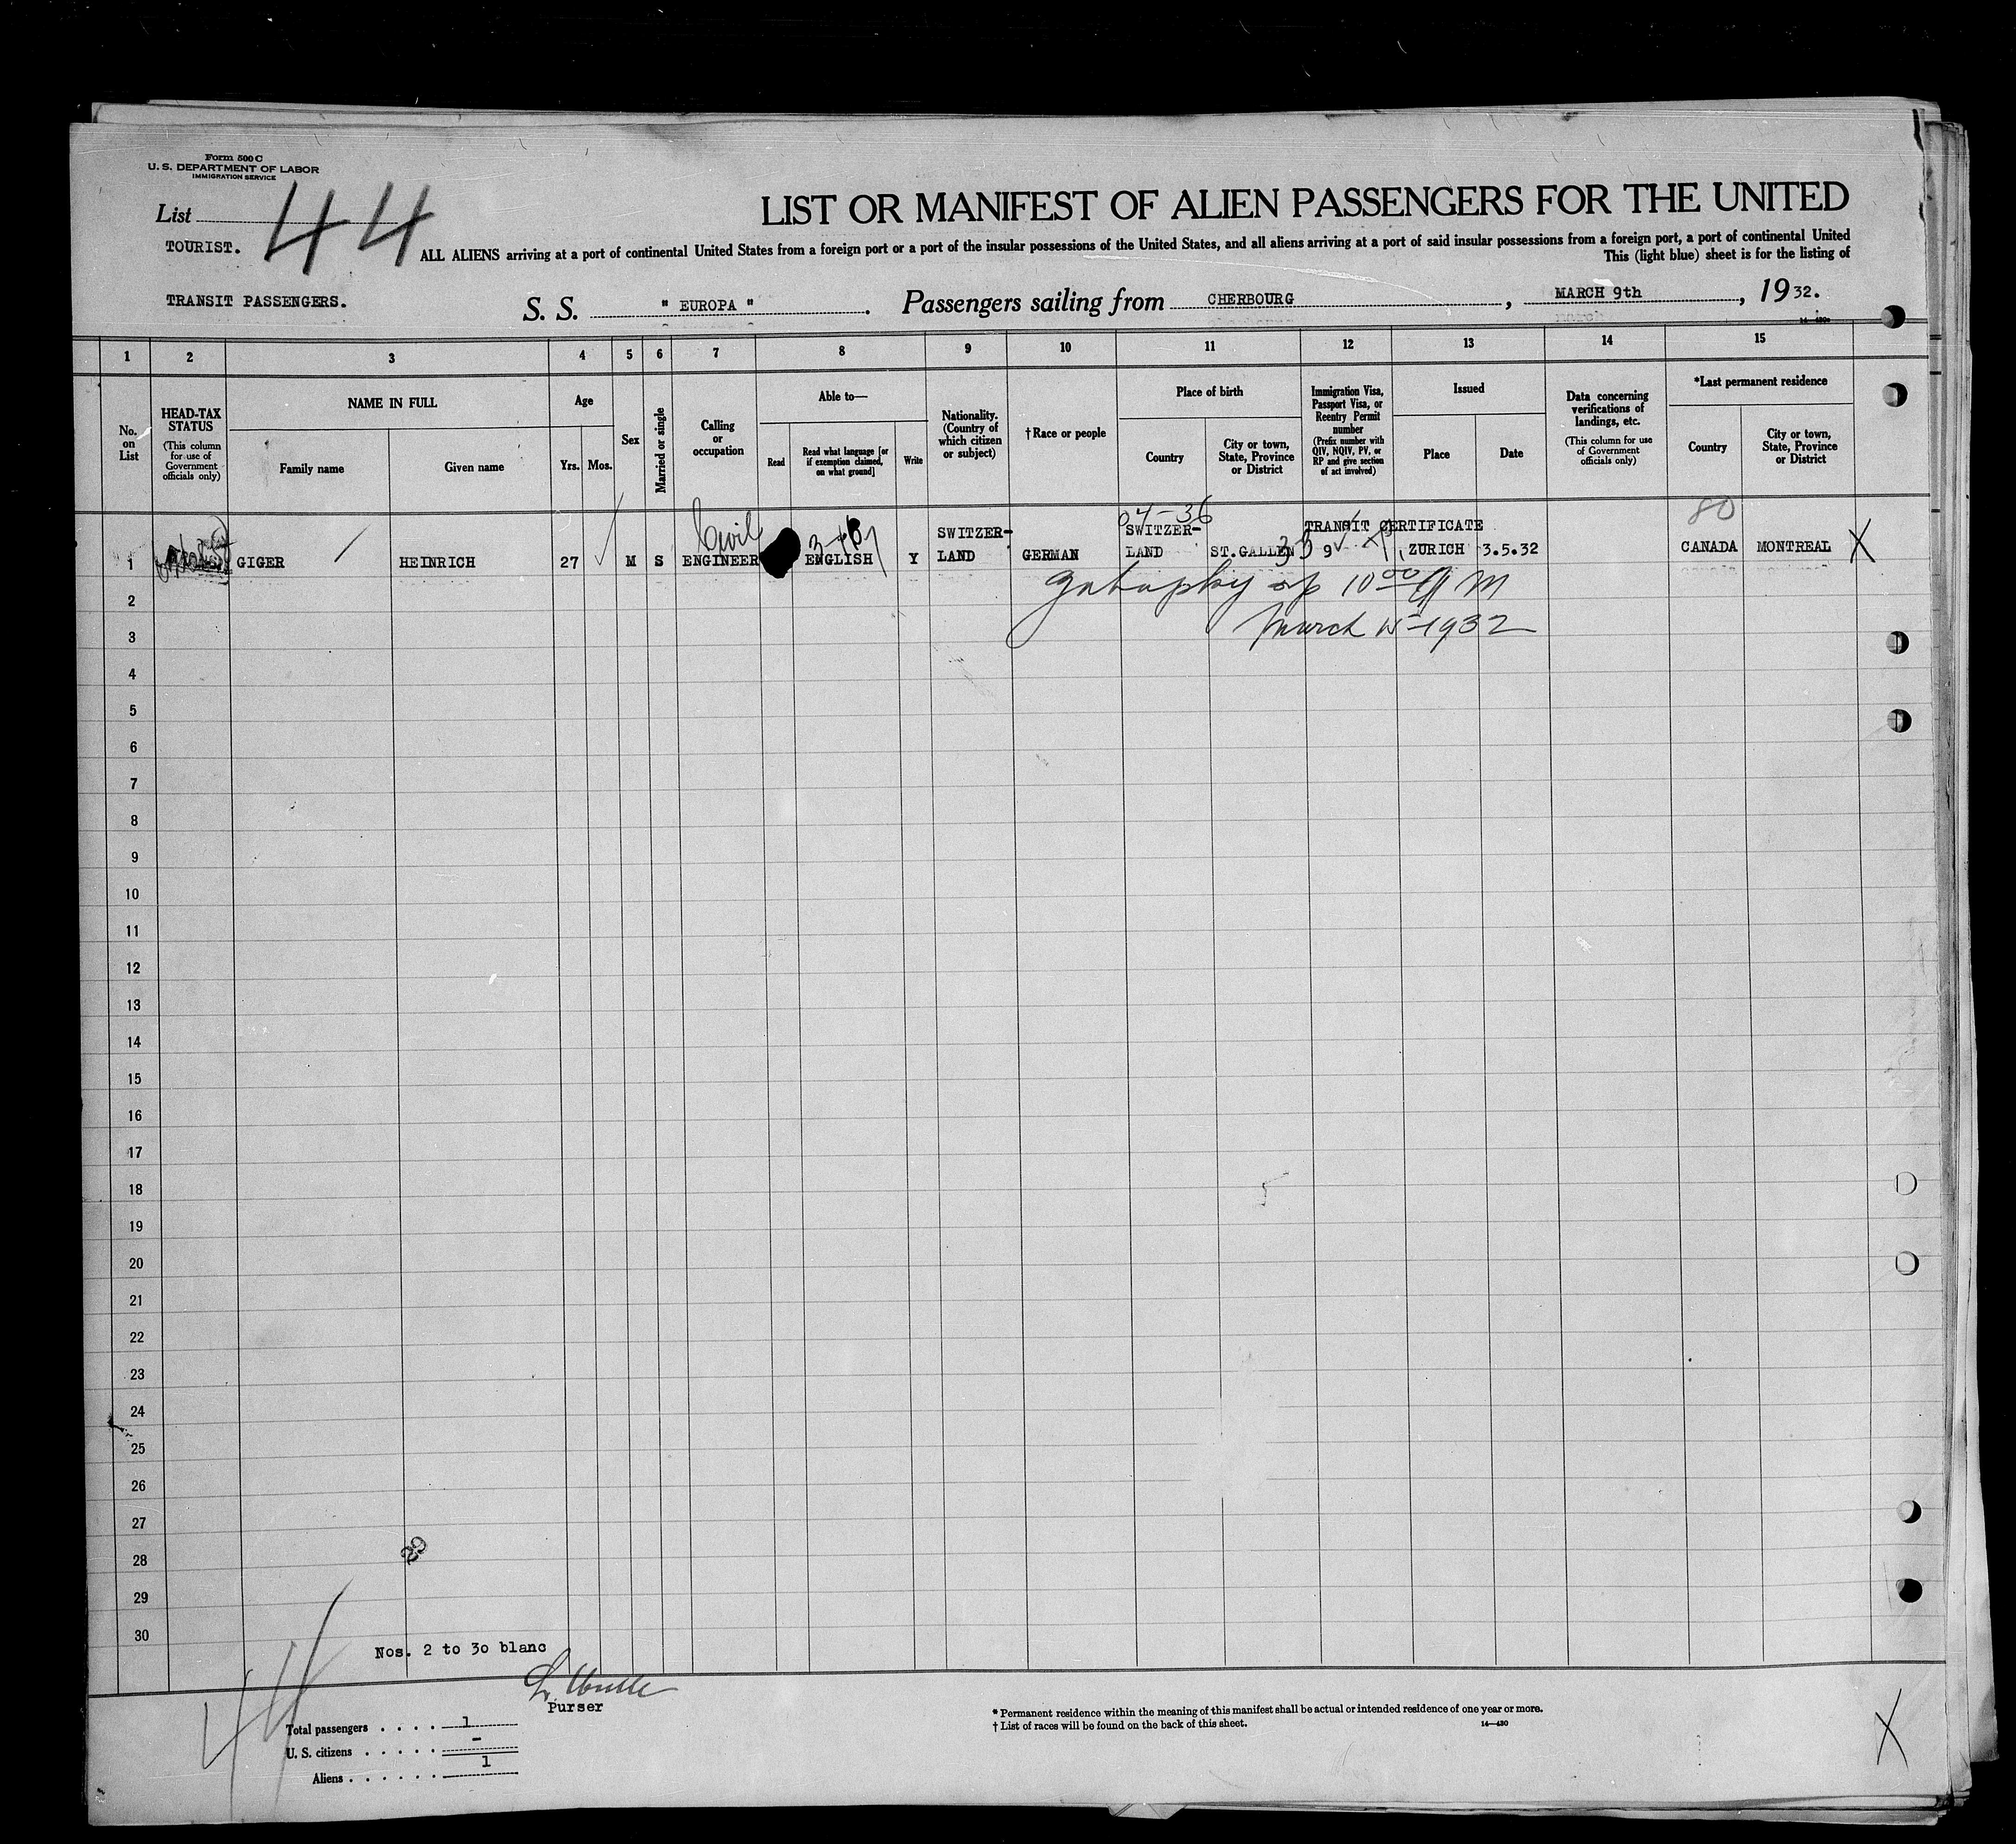 Form 500 C
U. S. DEPARTMENT OF LABOR
IMMIGRATION SERVICE
List 44
LIST OR MANIFEST OF ALIEN PASSENGERS FOR THE UNITED
TOURIST.
ALL ALIENS arriving at a port of continental United States from a foreign port or a port of the insular possessions of the United States, and all aliens arriving at a port of said insular possessions from a foreign port, a port of continental United
This (light blue) sheet is for the listing of
TRANSIT PASSENGERS.
S. S. " EUROPA ". Passengers sailing from CHERBOURG, MARCH 9th, 1932.
1 2 3 4 5 6 7 8 9 10 11 12 13 14 15
No. on List
HEAD-TAX STATUS
(This column for use of Government officials only)
NAME IN FULL
Family name
Given name
Age
Yrs. Mos.
Sex
Married or single
Calling or occupation
Able to—
Read
Read what language [or if exemption claimed, on what ground]
Write
Nationality. (Country of which citizen or subject)
†Race or people
Place of birth
Country
City or town, State, Province or District
Immigration Visa, Passport Visa, or Reentry Permit number
(Prefix number with QIV, NQIV, PV, or RP and give section of act involved)
Issued
Place
Date
Data concerning verifications of landings, etc.
(This column for use of Government officials only)
*Last permanent residence
Country
City or town, State, Province or District
04-36
80
Civil
SWITZER- SWITZER- TRANSIT CERTIFICATE
1 GIGER HEINRICH 27 M S ENGINEER ENGLISH Y LAND GERMAN LAND ST.GALLEN 9 ZURICH 3.5.32 CANADA MONTREAL X
2 10 00 A M
3 March 15-1932
4
5
6
7
8
9
10
11
12
13
14
15
16
17
18
19
20
21
22
23
24
25
26
27
28
29
30
Nos. 2 to 30 blanc
Purser
44
Total passengers . . . . 1
U. S. citizens . . . . . -
Aliens . . . . . . 1
* Permanent residence within the meaning of this manifest shall be actual or intended residence of one year or more.
† List of races will be found on the back of this sheet.
14—430
X